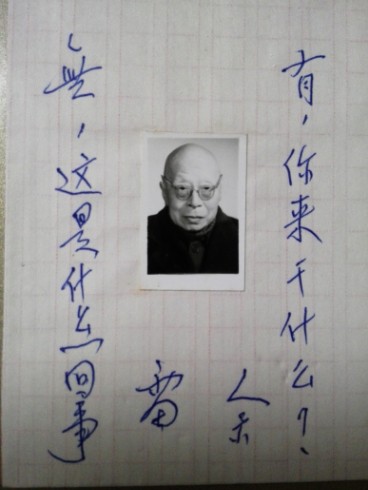 有，你来干什么？
人
無，这是什么回事